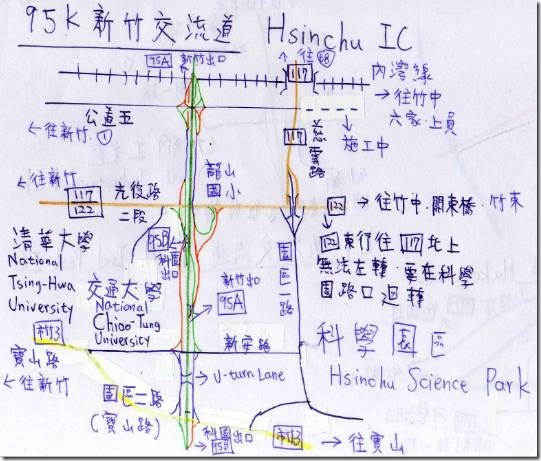 95K 新竹交流道 Hsinchu IC
95A 新竹出口
↑往68
117
內灣線
→往竹中
六家.上員
公道五
←往新竹.1
117
慈雲路
施工中
←往新竹
117
122
光復路
二段
龍山
國小
122 →往竹中.關東橋.竹東
122東行往117北上
無法左轉.要在科學
園路口迴轉
清華大學
National
Tsing-Hwa
University
95B
科園
出口
交通大學
National
Chiao-Tung
University
新竹出口
95A
園區一路
竹43
寶山路
←往新竹
新安路
科學園區
Hsinchu Science Park
→U-turn Lane
園區二路
(寶山路)
科園出口
95B
→往寶山